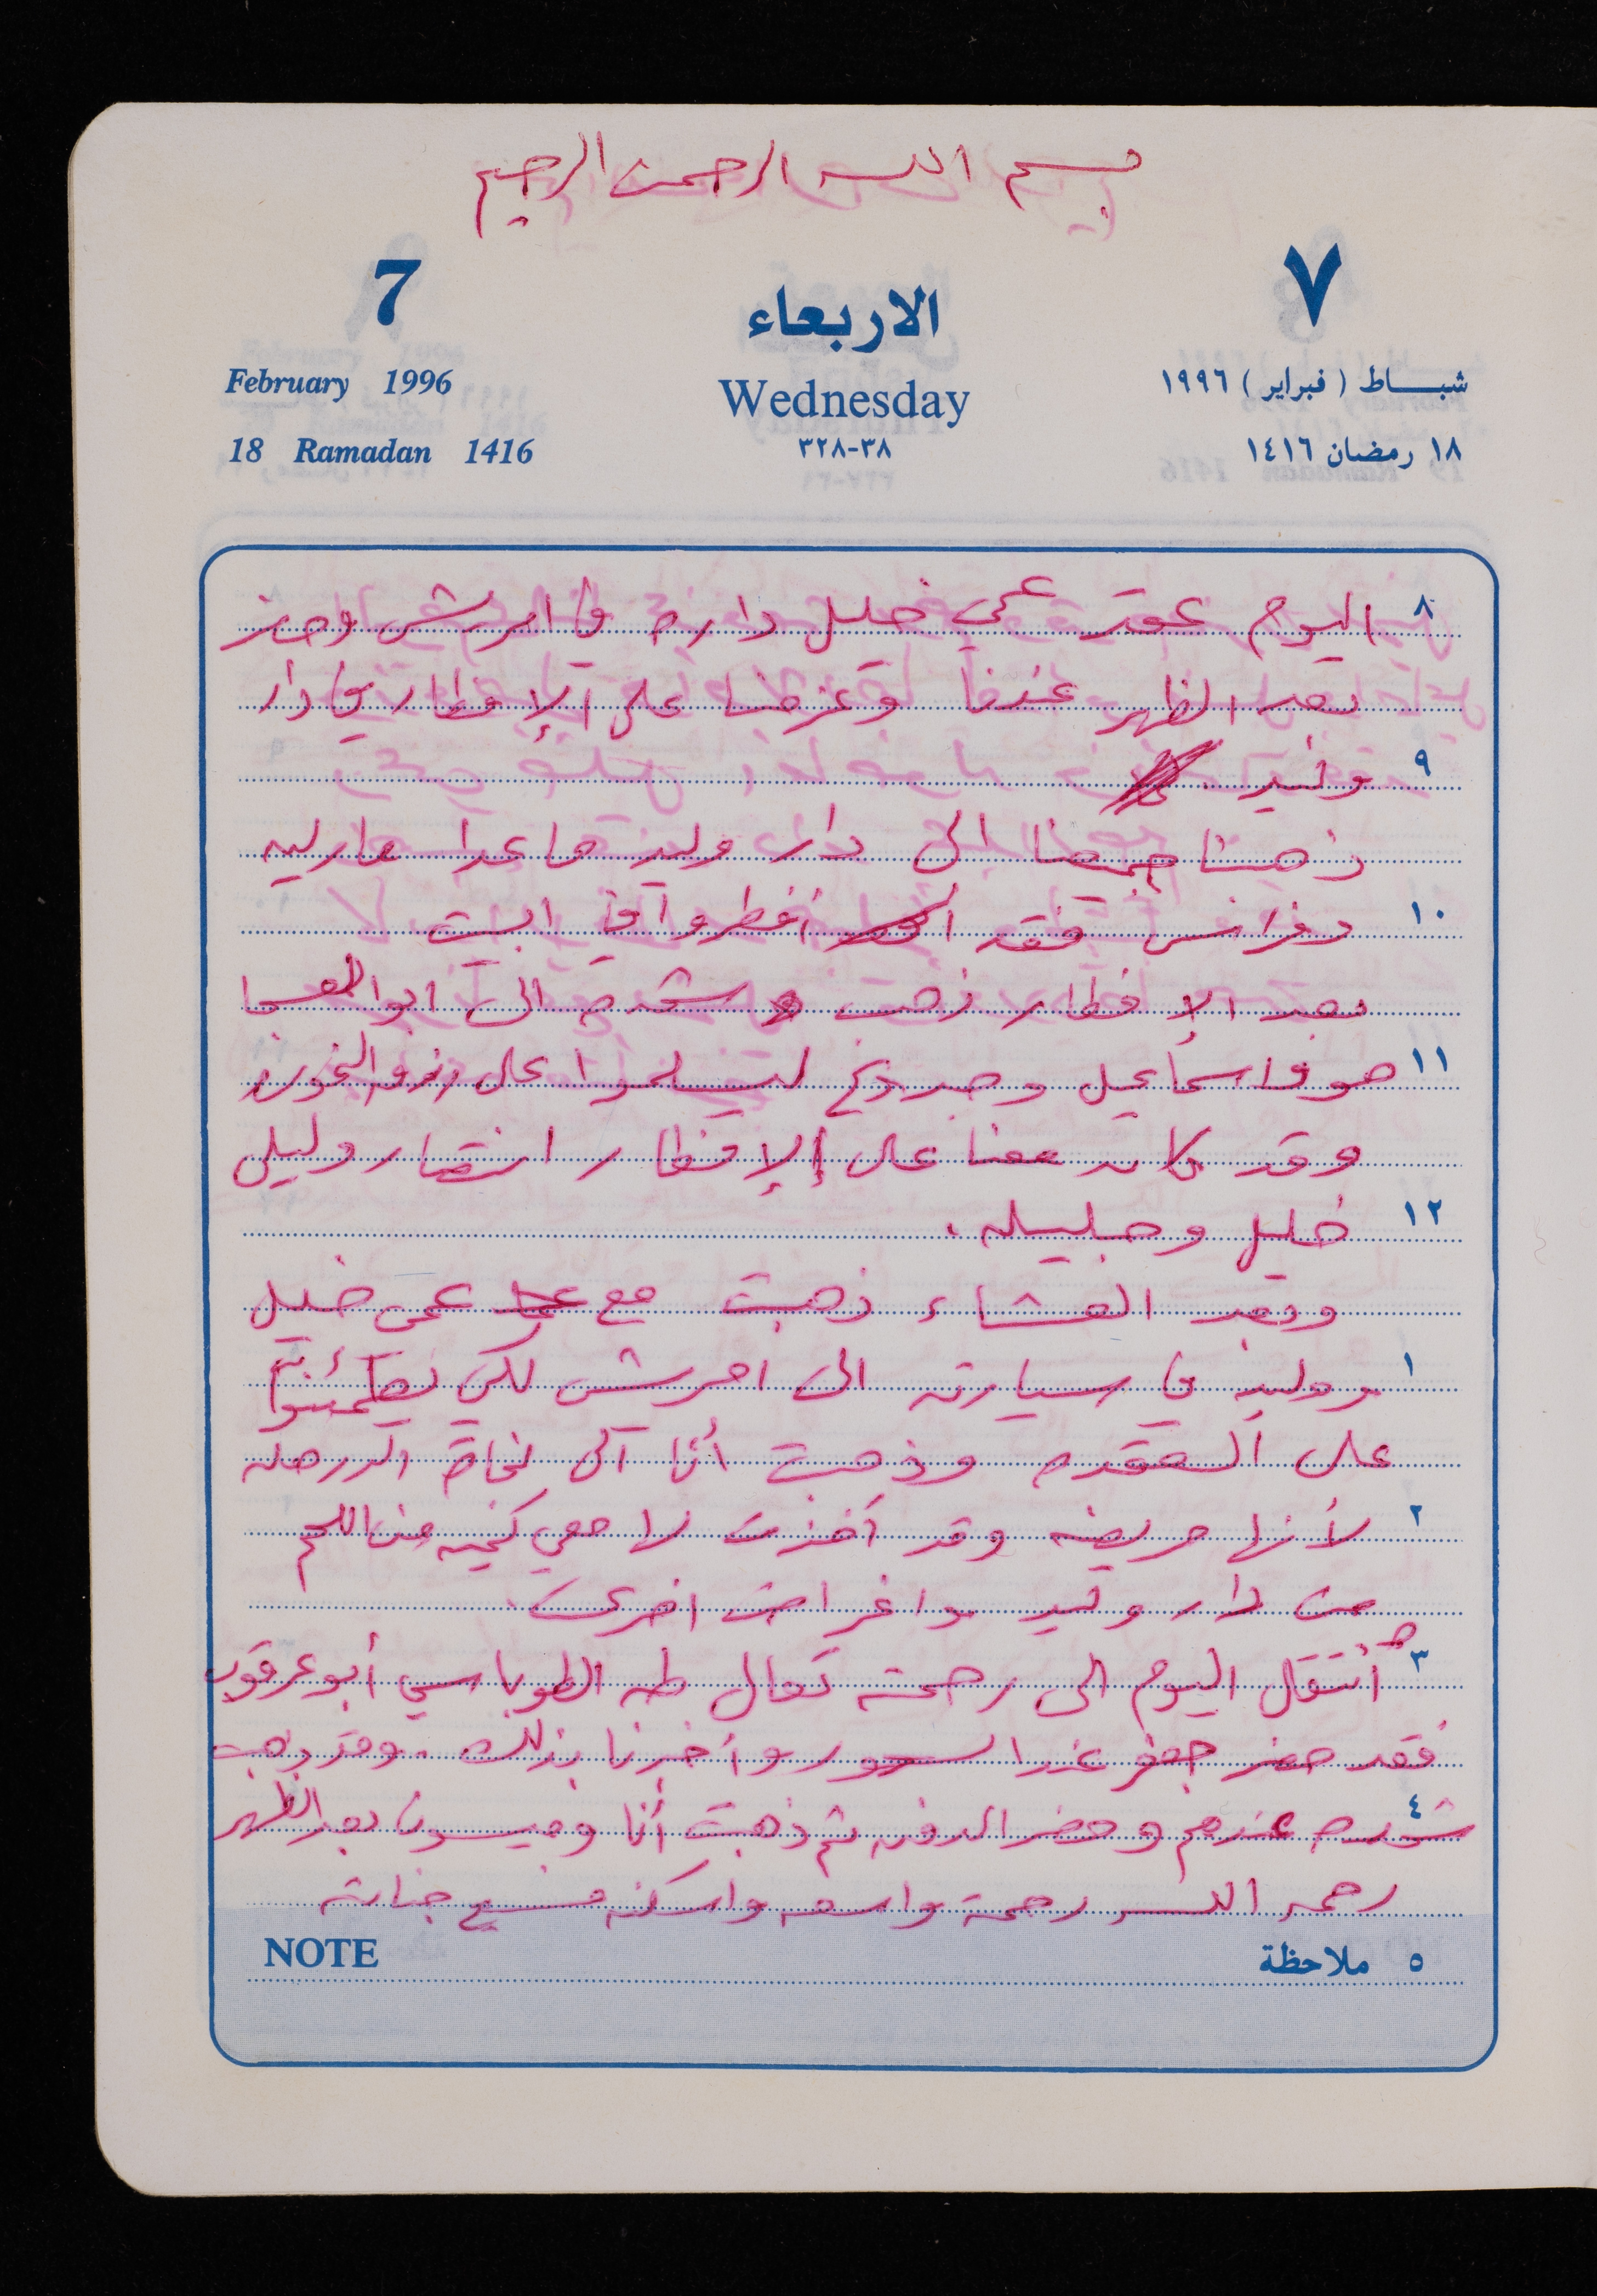 بسم الله الرحمن الرحيم
7
الاربعاء
٧
February 1996
Wednesday
شبـاط (فبراير) ١٩٩٦
18 Ramadan 1416
٣٨-٣٢٨
١٨ رمضان ١٤١٦
٨ اليوم عقد عمي خليل داره في امريش وحضر
بعد الظهر عندنا وعزمنا على الإفطار في دار
٩ وليد
ذهبنا جميعنا الى دار وليد ما عدا
١٠ فقد أفطروا في البيت
بعد الإفطار ذهبت الى ابو
١١ اسماعيل على
وقد كان معنا على الإفطار انتصار وليلى
١٢ خليل وجليله.
وبعد العشاء ذهبت مع عمي خليل
١ ووليد في سيارته الى امريش لكي يطمئنوا
على العقده وذهبت أنا الى
٢ لأنها مريضه وقد أخذت لها معي كميه من اللحم
من دار وليد واغراض اخرى.
٣ أنتقل اليوم الى رحمته تعالى طه الطوباسي أبو عرقوب
فقد حضر جعفر عند السحور وأخبرنا بذلك. وقد ذهب
٤ عندهم وحضر الدفن ثم ذهبت أنا وميسون بعد الظهر
رحمه الله رحمة واسعه واسكنه فسيح جناته
NOTE
٥ ملاحظة